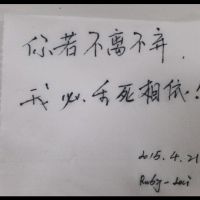 你若不离不弃,
我必生死相依!
2015.4.21